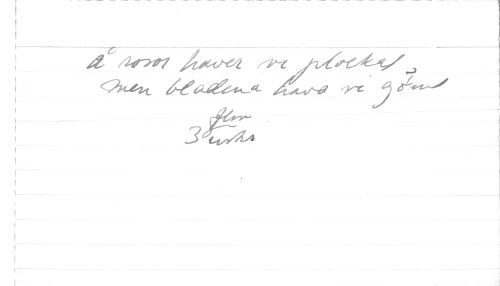 å rosor haver vi plockat
men bladena hava vi gömt
3